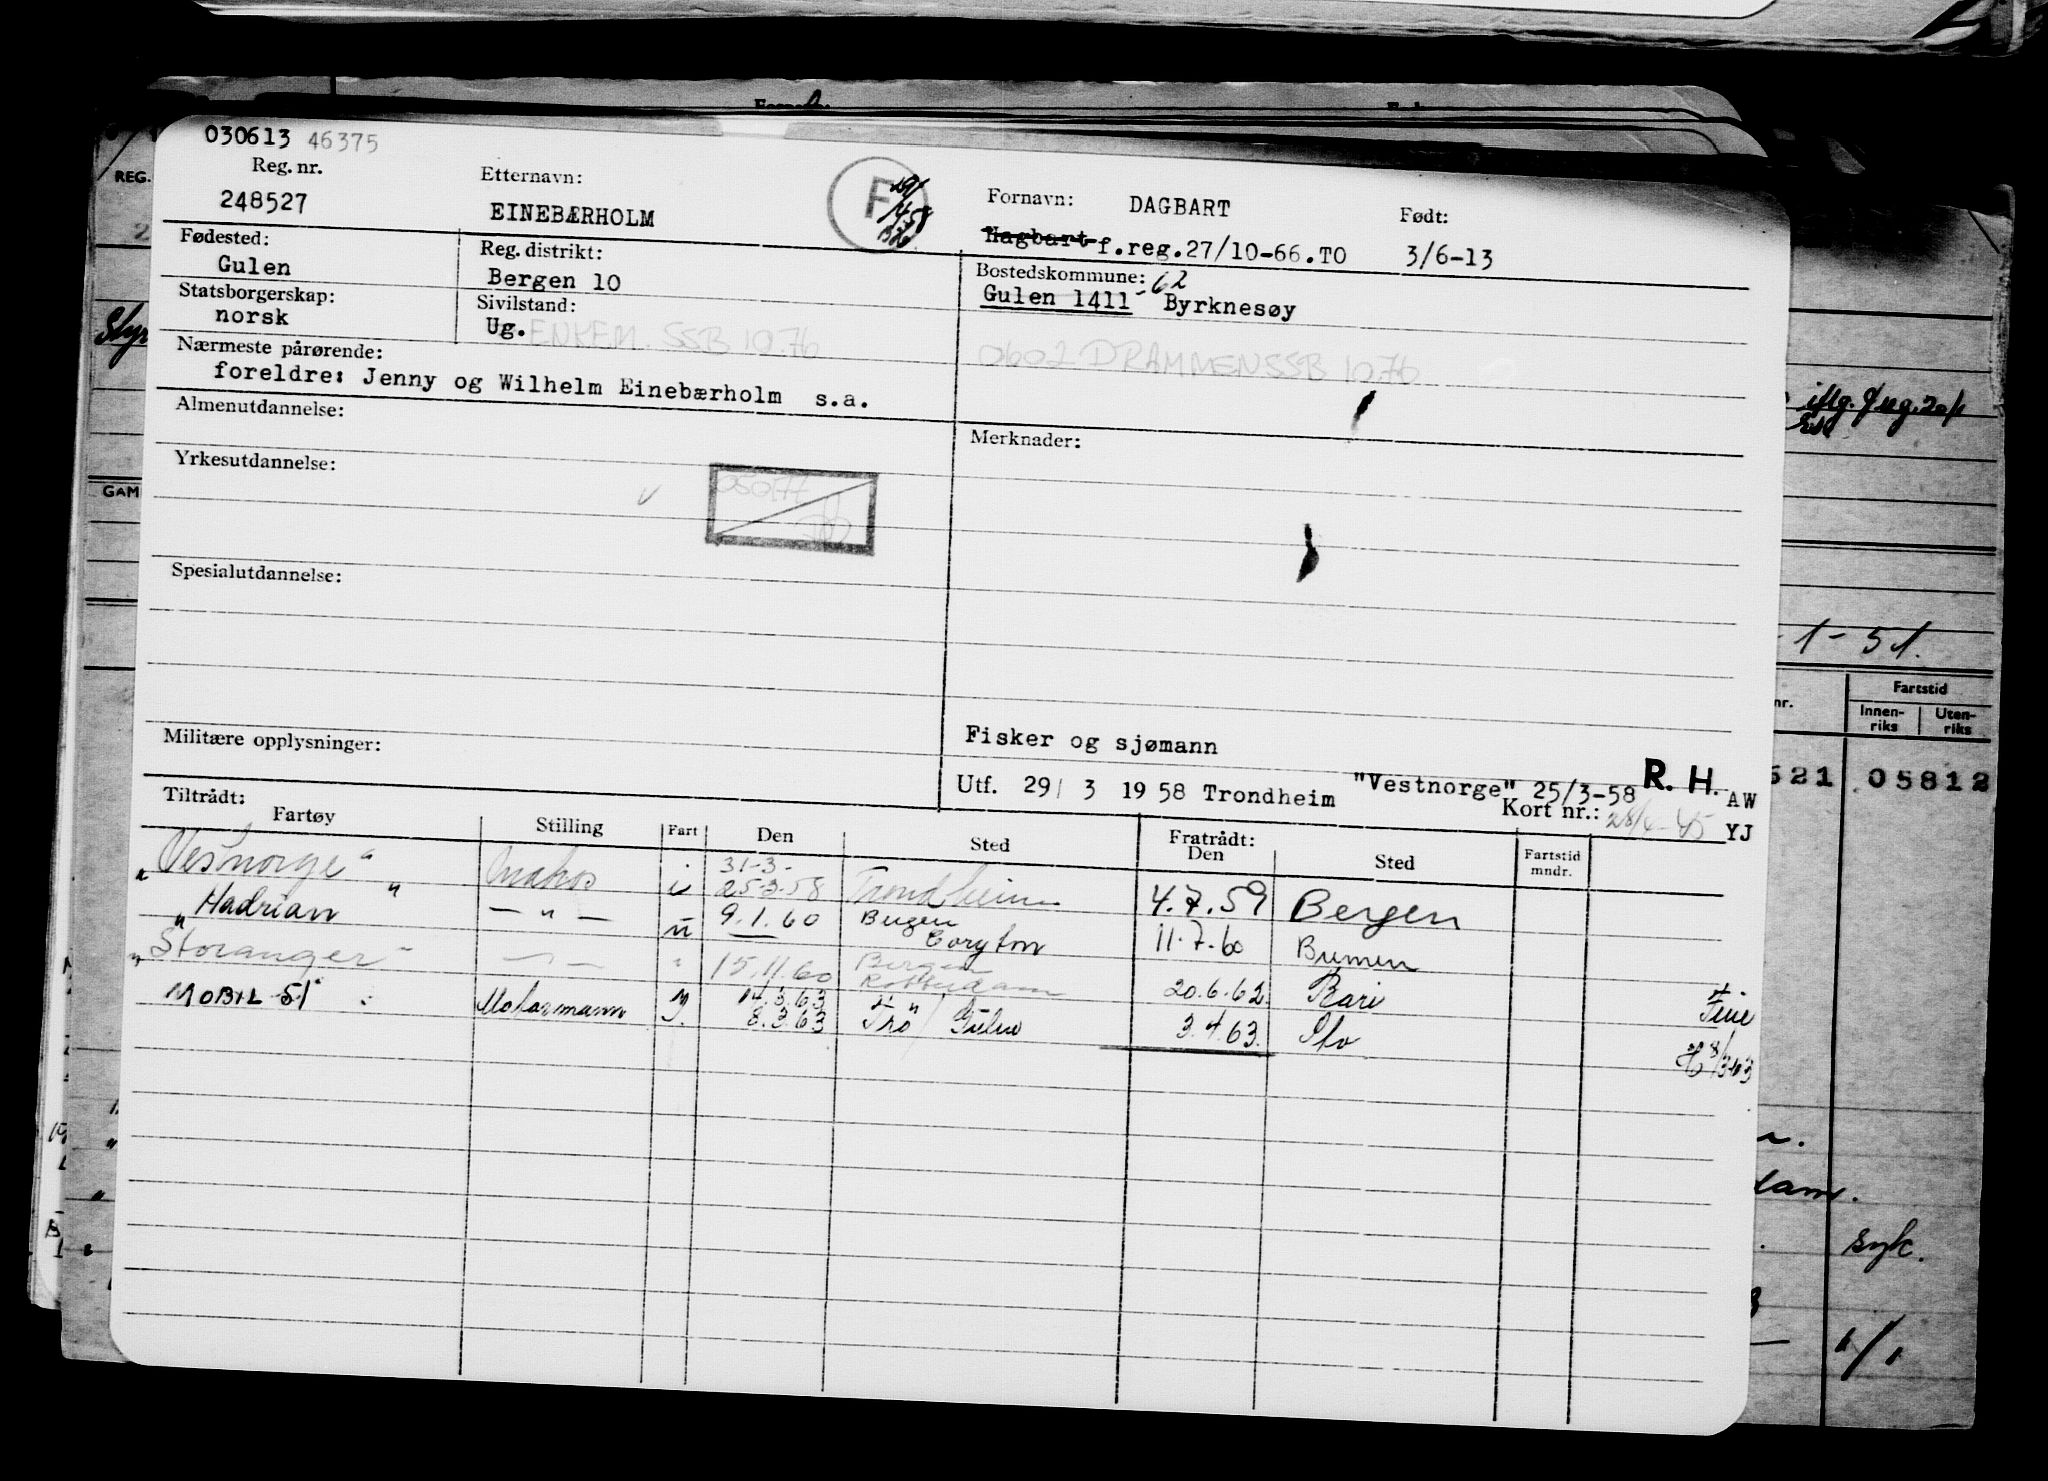 030613 46375
Reg. nr.
248527
Etternavn:
EINEBÆRHOLM
F
Fornavn: DAGBART
Hagbart f.reg.27/10-66.TO
Født:
3/6-13
Fødested:
Gulen
Reg. distrikt:
Bergen 10
Bostedskommune: 62
Gulen 1411 - Byrknesøy
Statsborgerskap:
norsk
Sivilstand:
Ug. ENKEM. SSB 10.76
0602 DRAMMEN SSB 10.76
Nærmeste pårørende:
foreldre: Jenny og Wilhelm Einebærholm s.a.
Almenutdannelse:
Merknader:
Yrkesutdannelse:
050177
Spesialutdannelse:
Militære opplysninger:
Fisker og sjømann
Utf. 29/ 3 1958 Trondheim "Vestnorge" 25/3-58 R. H. AW
Kort nr.: YJ
Tiltrådt:
Fartøy Stilling Fart Den Sted Fratrådt: Den Sted Fartstid mndr.
31-3-
"Vestnorge" i 25-3-58 Trondheim 4.7.59 Bergen
"Hadrian" — " — u 9.1.60 Bergen Coryton 11.7.60 Bremen
"Storanger" — " — " 15.11.60 Bergen Rotterdam 20.6.62 Bari
14.3.63
MOBIL 51 8.3.63 3.4.63.
REG.
GAM
- 1 - 51.
nr.
Fartstid
Innen-riks Uten-riks
521 05812
syk.
1/1